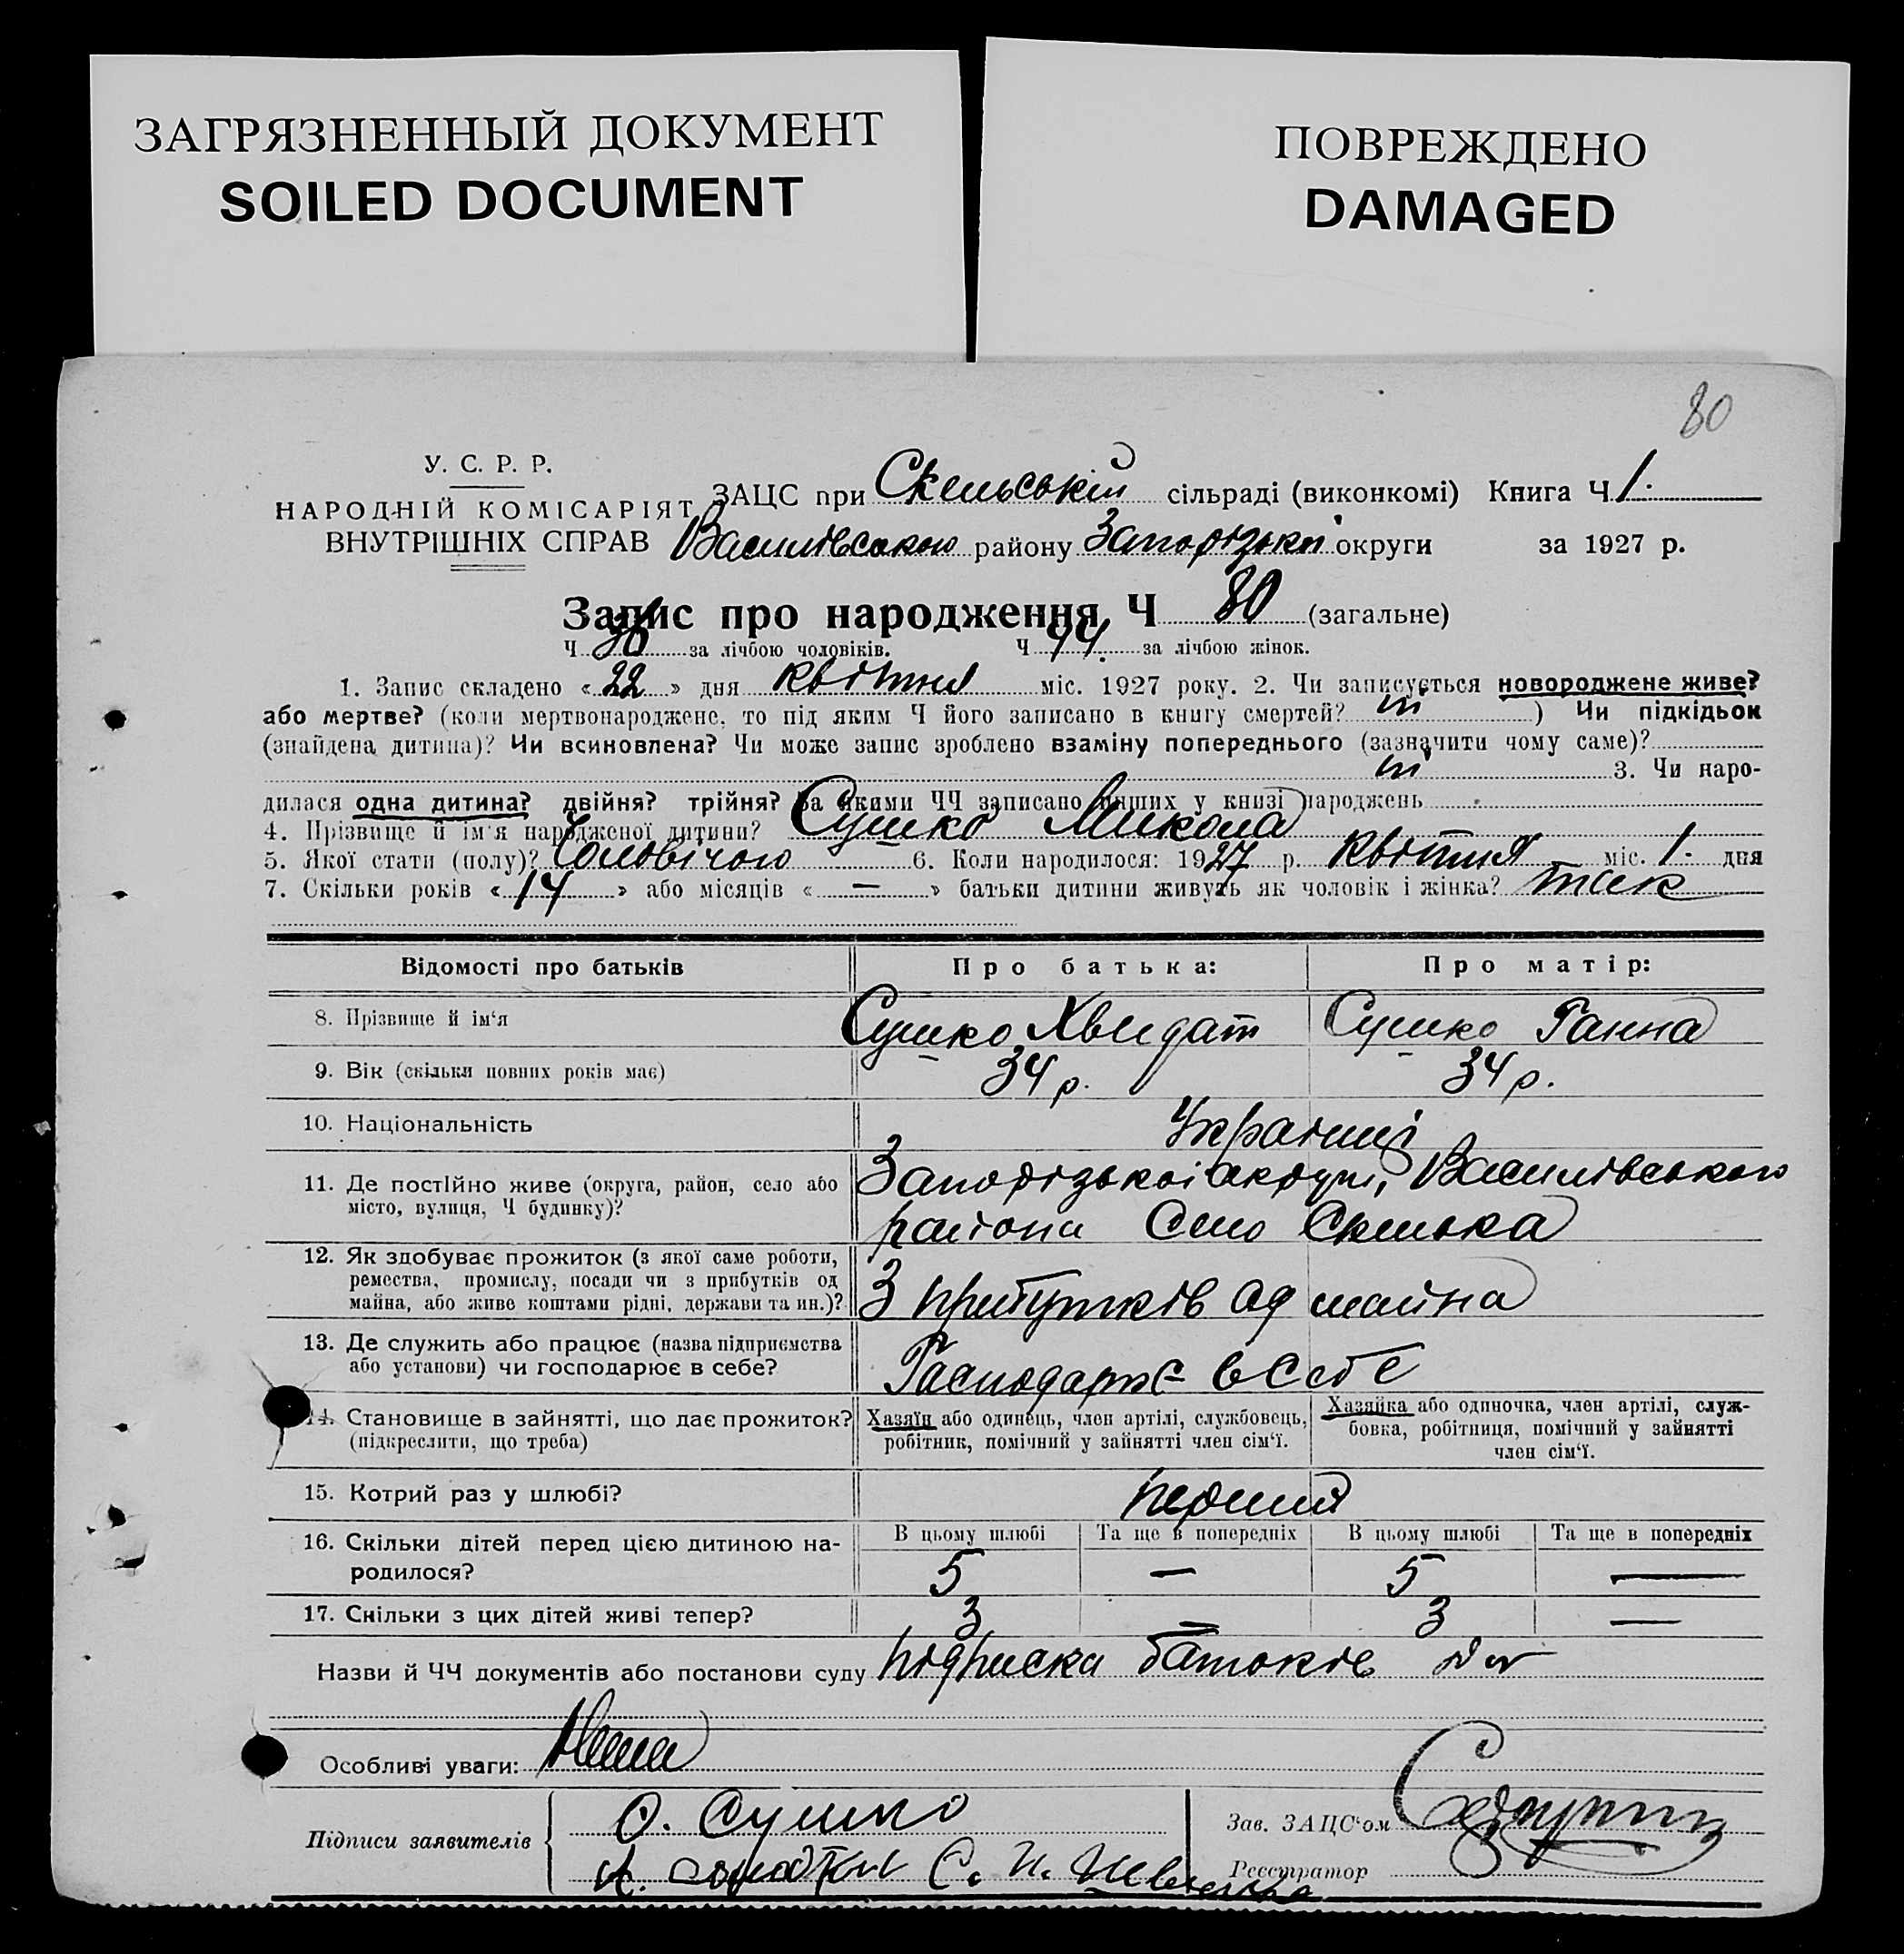 ЗАГРЯЗНЕННЫЙ ДОКУМЕНТ
SOILED DOCUMENT
ПОВРЕЖДЕНО
DAMAGED
80
У. С. Р. Р.
НАРОДНІЙ КОМІСАРІЯТ
ВНУТРІШНІХ СПРАВ
ЗАЦС при Скельській сільраді (виконкомі) Книга Ч 1.
Василівського району Запорізької округи за 1927 р.
Запис про народження Ч 80 (загальне)
Ч 36 за лічбою чоловіків. Ч 44. за лічбою жінок.
1. Запис складено «22» дня квітня міс. 1927 року. 2. Чи записується новороджене живе?
або мертве? (коли мертвонароджене, то під яким Ч його записано в книгу смертей? ні ) Чи підкідьок
(знайдена дитина)? Чи всиновлена? Чи може запис зроблено взаміну попереднього (зазначити чому саме)?
ні 3. Чи наро-
дилася одна дитина? двійня? трійня? За якими ЧЧ записано инших у книзі народжень
4. Прізвище й ім'я народженої дитини? Сушко Микола
5. Якої стати (полу)? Чоловічою 6. Коли народилося: 1927 р. квітня міс. 1. дня
7. Скільки років «14» або місяців «—» батьки дитини живуть як чоловік і жінка? так
Відомості про батьків Про батька: Про матір:
8. Прізвище й ім'я Сушко Хведат Сушко Ганна
9. Вік (скільки повних років має) 34 р. 34 р.
10. Національність Українці
11. Де постійно живе (округа, район, село або місто, вулиця, Ч будинку)? Запорізькоі округи, Василівського
района Село Скелька
12. Як здобуває прожиток (з якої саме роботи,
ремества, промислу, посади чи з прибутків од
майна, або живе коштами рідні, держави та ин.)? З прибутків од майна
13. Де служить або працює (назва підприємства
або установи) чи господарює в себе? Гасподарює в себе
14. Становище в зайнятті, що дає прожиток?
(підкреслити, що треба)
Хазяїн або одинець, член артілі, службовець,
робітник, помічний у зайнятті член сім'ї.
Хазяйка або одиночка, член артілі, служ-
бовка, робітниця, помічний у зайнятті
член сім'ї.
15. Котрий раз у шлюбі? перший
16. Скільки дітей перед цією дитиною на-
родилося?
В цьому шлюбі Та ще в попередніх В цьому шлюбі Та ще в попередніх
5 — 5 —
17. Скільки з цих дітей живі тепер? 3 — 3 —
Назви й ЧЧ документів або постанови суду підписка батьків
Особливі уваги: Нема
Підписи заявителів О. Сушко
Зав. ЗАЦС'ом
Реєстратор